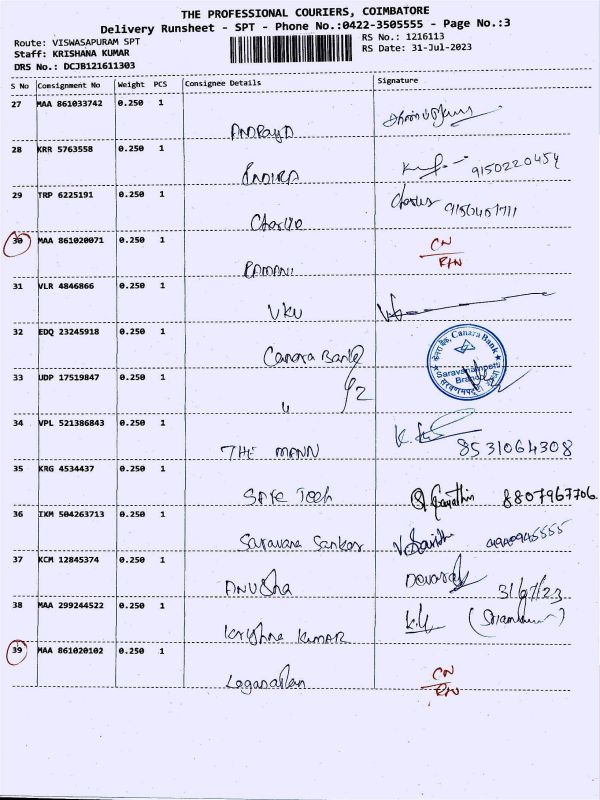 THE PROFESSIONAL COURIERS, COIMBATORE
Delivery Runsheet - SPT - Phone No.:0422-3505555 - Page No.:3
Route: VISWASAPURAM SPT RS No.: 1216113
Staff: KRISHANA KUMAR RS Date: 31-Jul-2023
DRS No.: DCJB121611303
S No Consignment No Weight PCS Consignee Details Signature
27 MAA 861033742 0.250 1
28 KRR 5763558 0.250 1
INDIRA 9150220454
29 TRP 6225191 0.250 1 Charles
30 MAA 861020071 0.250 1 CN
RAMANI R/N
31 VLR 4846866 0.250 1
VKV
32 EDQ 23245918 0.250 1
Canara Bank केनरा बैंक, Canara Bank
Saravanampatti
Branch
33 UDP 17519847 0.250 1
34 VPL 521386843 0.250 1
THE MANN 8531064308
35 KRG 4534437 0.250 1
SAFE Tech 8807967706
36 IKM 504263713 0.250 1
Saravana Sankar
37 KCM 12845374 0.250 1
ANUSha 31/07/23
38 MAA 299244522 0.250 1
Krishna KUMAR
39 MAA 861020102 0.250 1 CN
R/N